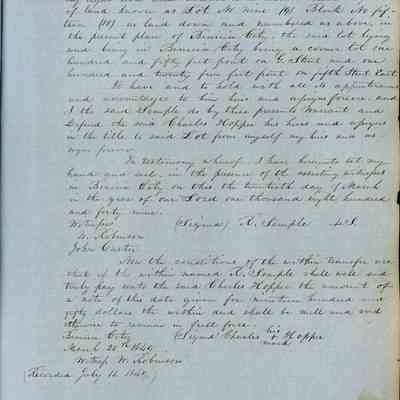 of land known as Lot No nine (9) Block No fif-
teen (15) as laid down and numbered as above, in
the present plan of Benicia City, the said lot lying
and being in Benicia City being a corner lot one
hundred and fifty feet front on G Street and one
hundred and twenty five feet front on fifth Street East
To have and to hold with all its appurtenances
and advantages to him his heirs and assigns forever and
I the said Semple do by these presents warrant and
defend the said Charles Hopper his heirs and assigns
in the title to said Lot from myself my heirs and as
signs forever
In testimony whereof I have hereunto set my
hand and seal in the presence of the assisting witnesses
in Benicia City on this the twentieth day of March
in the year of our Lord one thousand eight hundred
and forty nine.
Witnesses (Signed) R. Semple L.S.
W. Robinson
John Carter
Now the conditions of the within transfer are
that if the within named R. Semple shall well and
truly pay unto the said Charles Hopper the amount of
a note of this date given for nineteen hundred and
fifty dollars the within deed shall be null and void
otherwise to remain in full force.
Benicia City (Signed Charles his + mark Hopper
March 20th 1849
Witness W. Robinson
(Recorded July 16 1849)